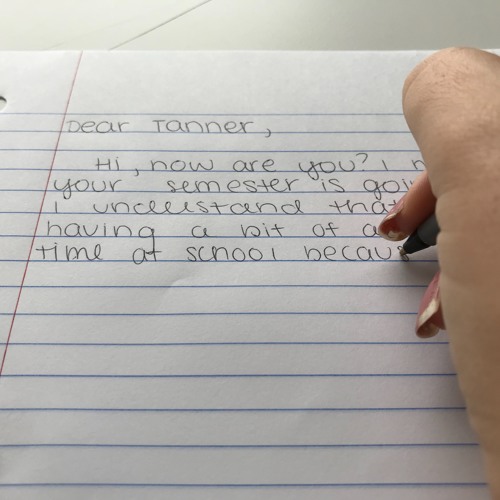 Dear Tanner,
Hi, how are you? I h
your semester is goi
I understand that
having a bit of a
time at school becaus